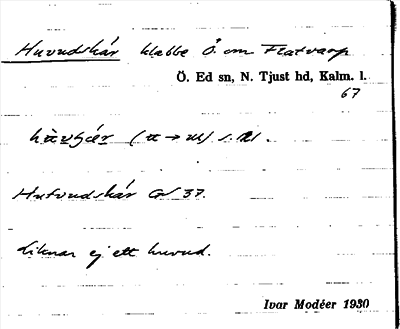 Huvudskär klabbe Ö. om Flatvarp
Ö. Ed sn, N. Tjust hd, Kalm. l.
67
Hufvudskär GS 37.
Liknar ej ett huvud.
Ivar Modéer 1930